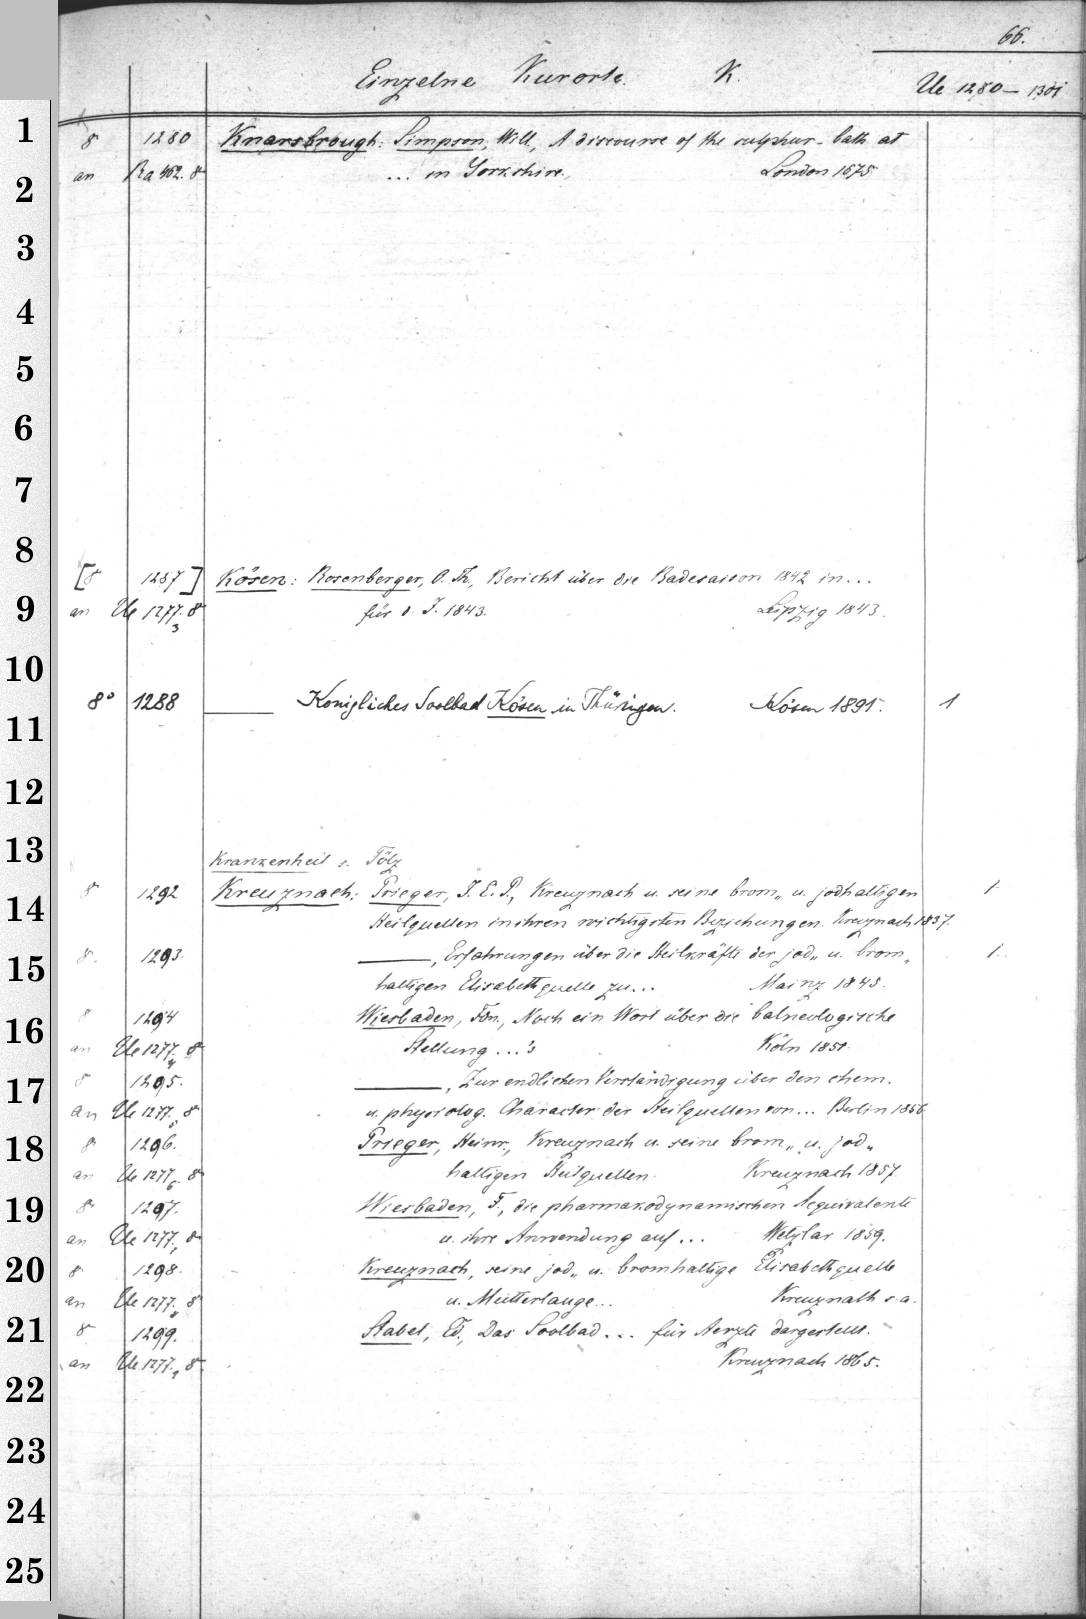 66.
Einzelne Kurorte. K. Ue 1280 – 1301
1
8 1280 Knarsbrough: Simpson, Will., A discourse of the sulphur-bath at
an Ra 462. 8 ... in Yorkshire. London 1675
2
3
4
5
6
7
8
[8 1287] Kösen: Rosenberger, O. Th., Bericht über die Badesaison 1842 in ...
9
an Ue 1277. 8 für d. J. 1843. Leipzig 1843.
3
10
8° 1288 —— Königliches Soolbad Kösen in Thüringen. Kösen 1891. 1
11
12
13
Kranzenheil s. Tölz
8 1292 Kreuznach: Prieger, J. E. P., Kreuznach u. seine brom„ u. jodhaltigen 1.
14
Heilquellen in ihren wichtigsten Beziehungen. Kreuznach 1837.
8. 1293. ——, Erfahrungen über die Heilkräfte der jod„ u. brom„ 1.
15
haltigen Elisabethquelle zu ... Mainz 1845.
8 1294 Wiesbaden, Fdn., Noch ein Wort über die balneologische
16
an Ue 1277. 8 Stellung ...'s Köln 1851.
4
8 1295. ——, Zur endlichen Verständigung über den chem.
17
an Ue 1277. 8 u. physiolog. Character der Heilquellen von ... Berlin 1856
5
8 1296. Prieger, Heinr., Kreuznach u. seine brom„ u. jod„
18
an Ue 1277. 8 haltigen Heilquellen. Kreuznach 1857.
6
8 1297. Wiesbaden, F., die pharmakodynamischen Aequivalente
19
an Ue 1277. 8 u. ihre Anwendung auf ... Wetzlar 1859.
7
8 1298. Kreuznach, seine jod„ u. bromhaltige Elisabethquelle
20
an Ue 1277. 8 u. Mutterlauge... Kreuznath s. a.
8
8 1299. Stabel, Ed., Das Soolbad ... für Aerzte dargestellt.
21
an Ue 1277. 8. Kreuznach 1865.
9
22
23
24
25